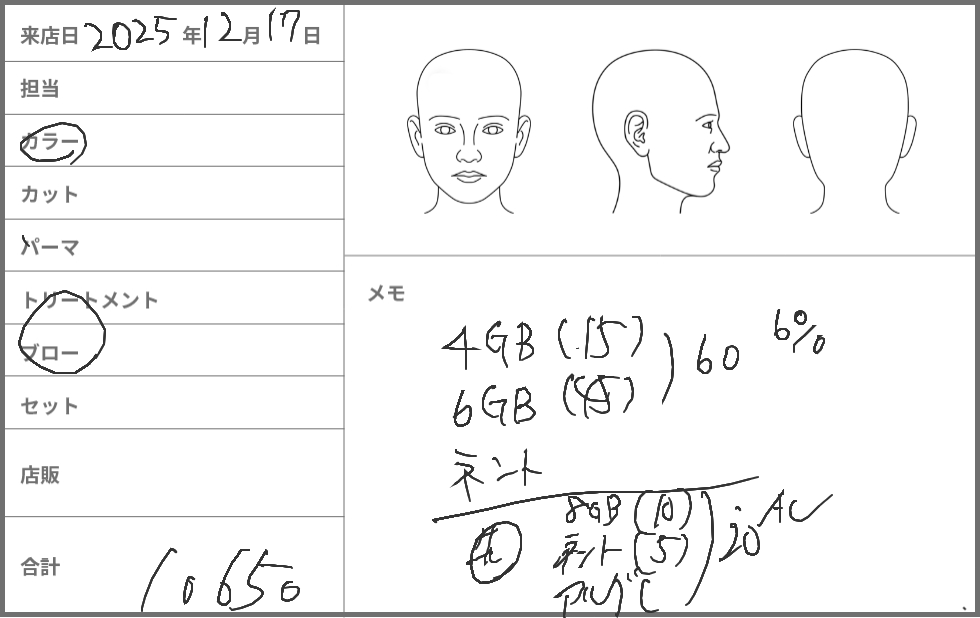 来店日 2025年12月17日
担当
カラー
カット
パーマ
トリートメント
ブロー
セット
店販
合計 10650
メモ
4GB (15)
6GB (45)
60 6%
ネント
8GB (10)
ネント (5)
20 AC